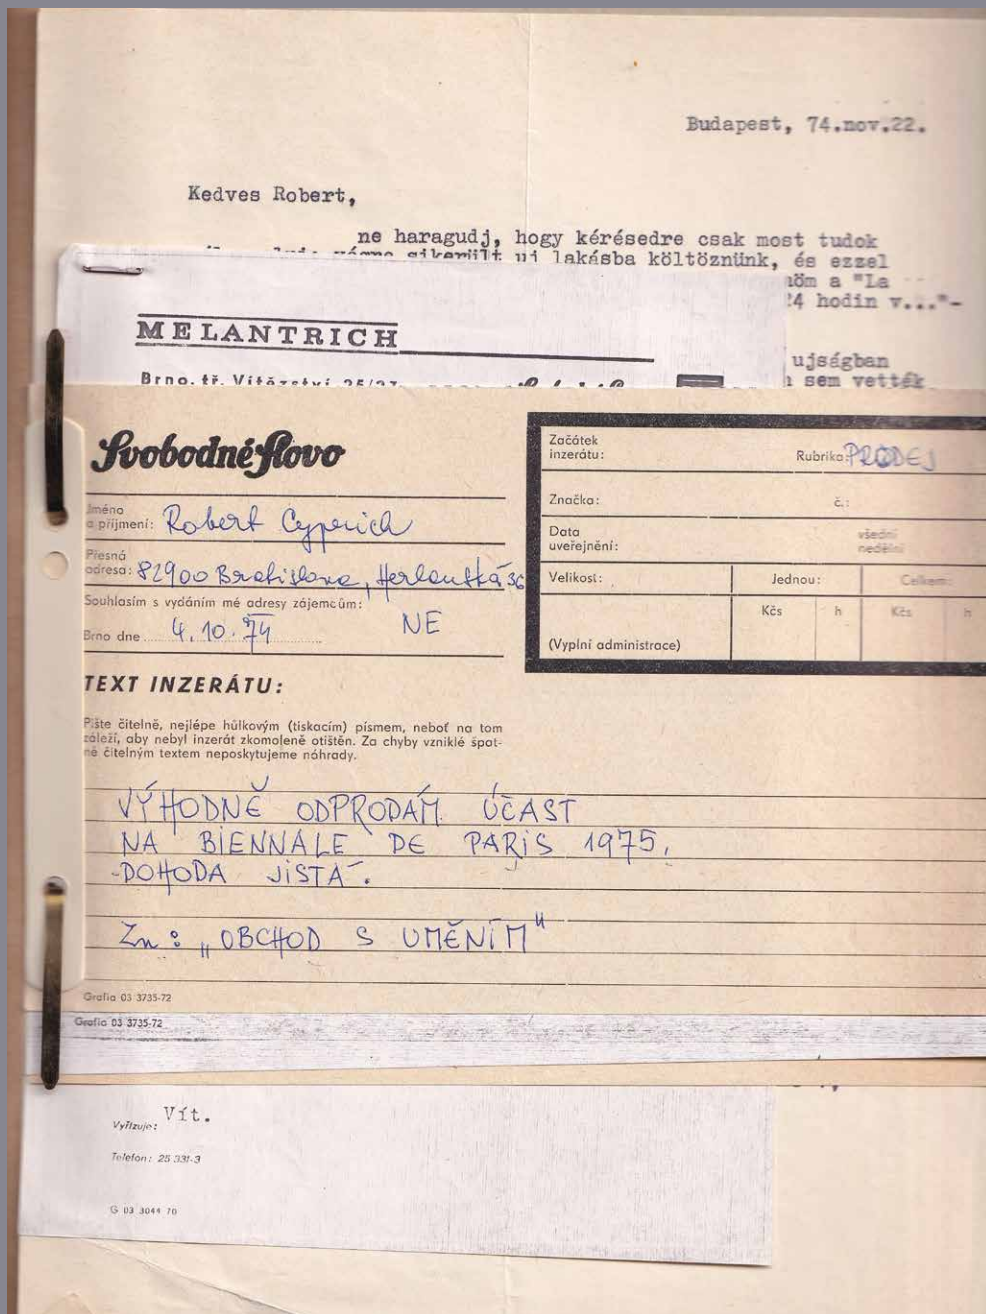 Budapest, 74.nov.22.
Kedves Robert,
ne haragudj, hogy kérésedre csak most tudok
sikerült uj lakásba költöznünk, és ezzel
a "La
24 hodin v..."-
ujságban
sem vették
MELANTRICH
Brno, tř. Vítězství
Svobodné slovo
Jméno
a příjmení: Robert Cyprich
Přesná
adresa: 82900 Bratislava, 36
Souhlasím s vydáním mé adresy zájemcům:
NE
Brno dne 4.10.74
Začátek
inzerátu:
Rubrika PRODEJ
Značka:
č.:
Data
uveřejnění:
všední
nedělní
Velikost:
Jednou:
Celkem:
Kčs h Kčs h
(Vyplní administrace)
TEXT INZERÁTU:
Pište čitelně, nejlépe hůlkovým (tiskacím) písmem, neboť na tom
záleží, aby nebyl inzerát zkomoleně otištěn. Za chyby vzniklé špat-
ně čitelným textem neposkytujeme náhrady.
VÝHODNĚ ODPRODÁM ÚČAST
NA BIENNALE DE PARIS 1975.
DOHODA JISTÁ.
Zn: „OBCHOD S UMĚNÍM"
Grafia 03 3735-72
Grafia 03 3735-72
Vyřizuje: Vít.
Telefon: 25 331-3
G 03 3044 70